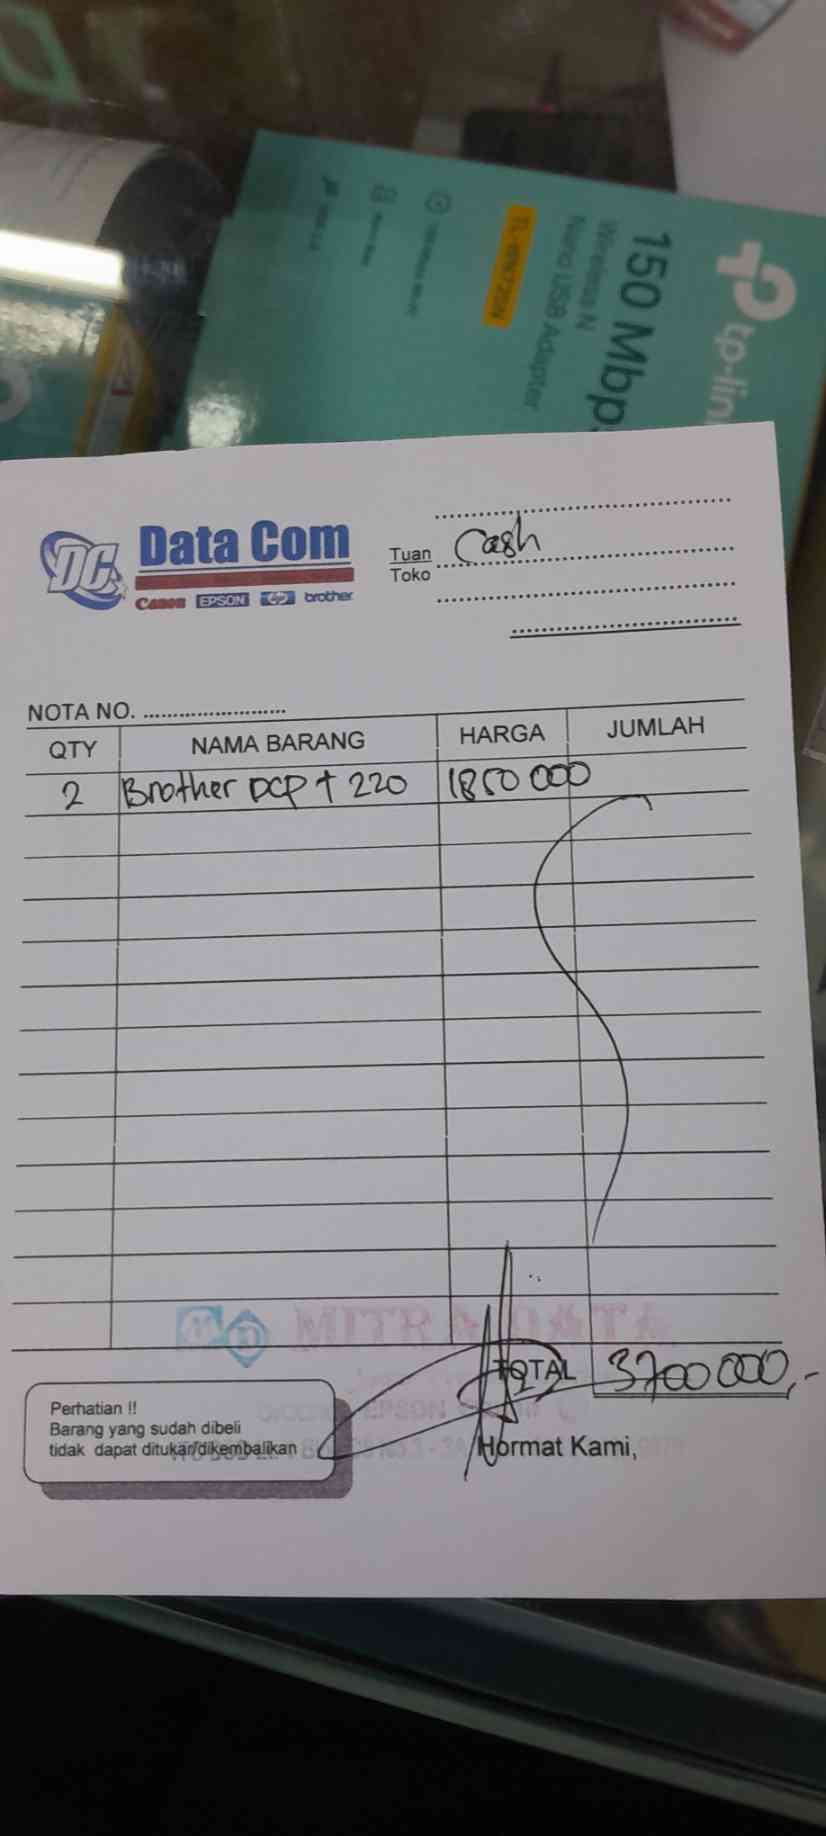 tp-link
150 Mbps
Wireless N
Nano USB Adapter
TL-WN725N
DC
Data Com
Canon EPSON hp brother
Tuan
Toko
Cash
NOTA NO. ........................
QTY NAMA BARANG HARGA JUMLAH
2 Brother DCP T 220 1850 000
TOTAL 3700 000,-
Perhatian !!
Barang yang sudah dibeli
tidak dapat ditukar/dikembalikan
Hormat Kami,